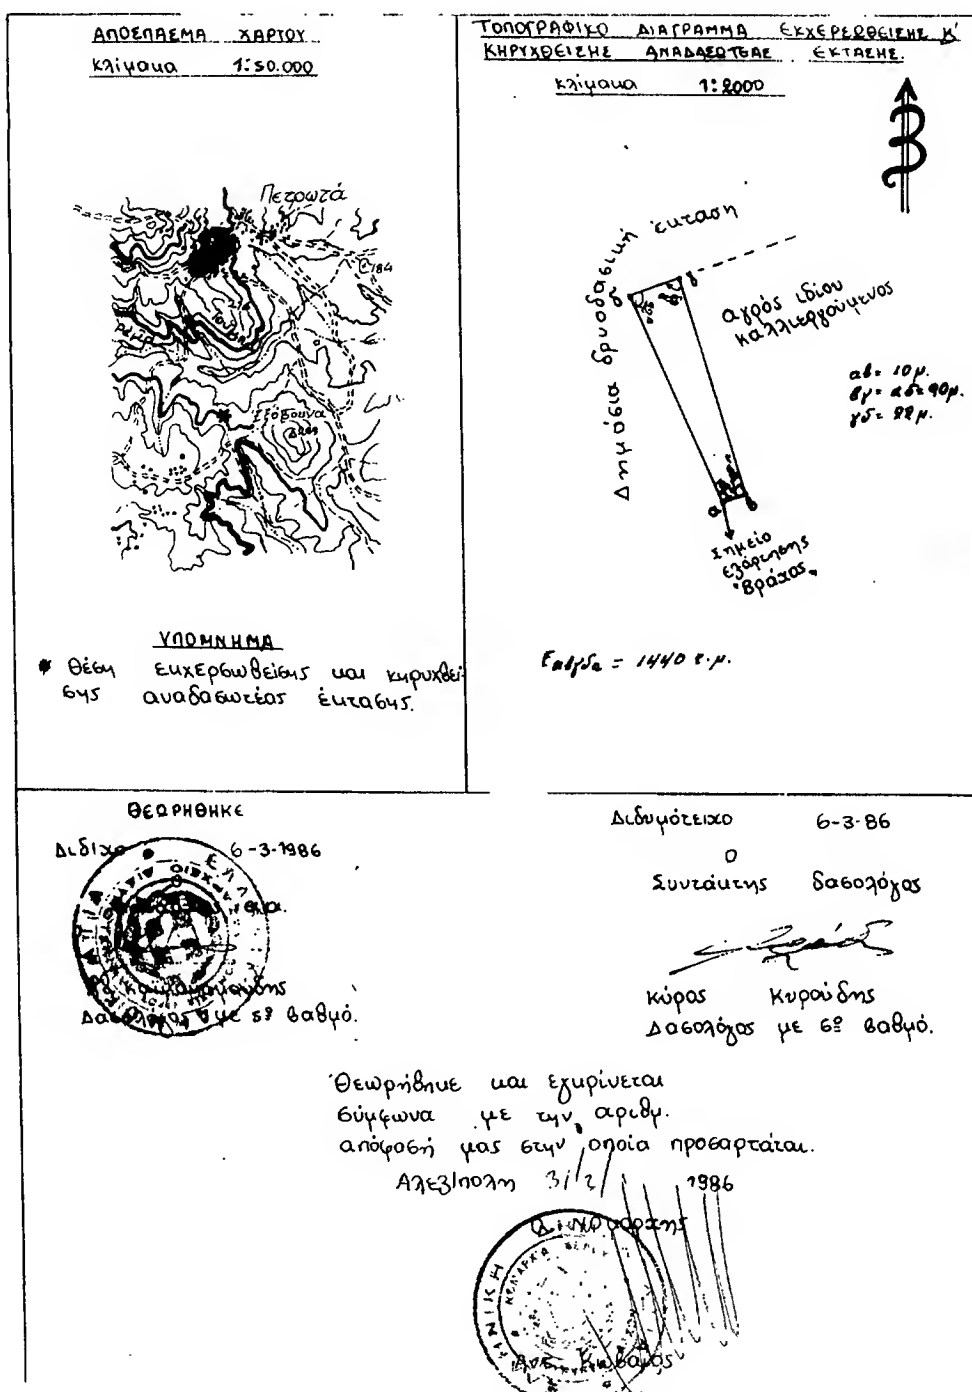 ΑΠΟΣΠΑΣΜΑ ΧΑΡΤΟΥ
κλίμακα 1:50.000
Πετρωτά
184
ΥΠΟΜΝΗΜΑ
* Θέση εκχερσωθείσης και κηρυχθεί-
σης αναδασωτέας έκτασης.
ΤΟΠΟΓΡΑΦΙΚΟ ΔΙΑΓΡΑΜΜΑ ΕΚΧΕΡΣΩΘΕΙΣΗΣ Κ'
ΚΗΡΥΧΘΕΙΣΗΣ ΑΝΑΔΑΣΩΤΕΑΣ ΕΚΤΑΣΗΣ.
κλίμακα 1:2000
Β
Δημόσια δρυοδασική έκταση
δ
γ
αγρός ιδίου
καλλιεργούμενος
αβ= 10μ.
βγ= αδ= 90μ.
γδ= 22μ.
α
β
Σημείο
εξάρτησης
"Βράχος"
Εαβγδα = 1440 τ.μ.
ΘΕΩΡΗΘΗΚΕ
Διδ/χο 6-3-1986
Δασολόγος με 5º βαθμό.
Διδυμότειχο 6-3-86
Ο
Συντάκτης δασολόγος
Κύρος Κυρούδης
Δασολόγος με 6º βαθμό.
Θεωρήθηκε και εγκρίνεται
σύμφωνα με την αριθμ.
απόφασή μας στην οποία προσαρτάται.
Αλεξ/πολη 3/2/ 1986
Ο Νομάρχης